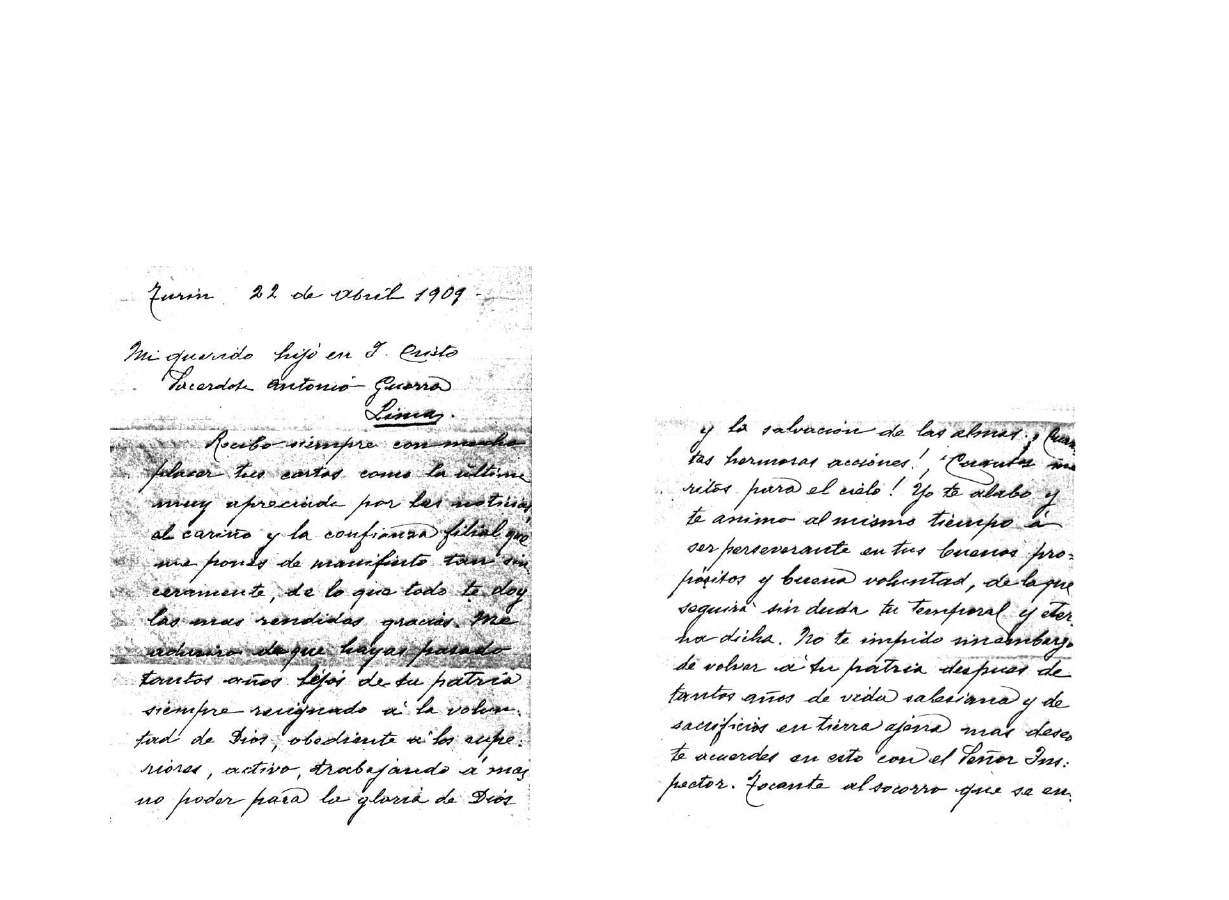 Turin 22 de Abril 1909 -
Mi querido hijo en J. Cristo
Sacerdote Antonio Guerra
Lima.
Recibo siempre con mucho
placer tus cartas como la última
muy apreciada por las noticias,
al cariño y la confianza filial que
me pones de manifiesto tan sin
ceramente, de lo que todo te doy
las mas rendidas gracias. Me
admiro de que hayas pasado
tantos años lejos de tu patria
siempre resignado á la volun-
tad de Dios, obediente á los supe-
riores, activo, trabajando á mas
no poder para la gloria de Dios
y la salvación de las almas. ¡Cuan
tas hermosas acciones! ¡Cuantos mé
ritos para el cielo! Yo te alabo y
te animo al mismo tiempo á
ser perseverante en tus buenos pro-
pósitos y buena voluntad, de la que
seguirá sin duda tu temporal y eter
na dicha. No te impido sinembargo
de volver á tu patria despues de
tantos años de vida salesiana y de
sacrificios en tierra ajena mas deseo
te acuerdes en esto con el Señor Ins-
pector. Tocante al socorro que se en-